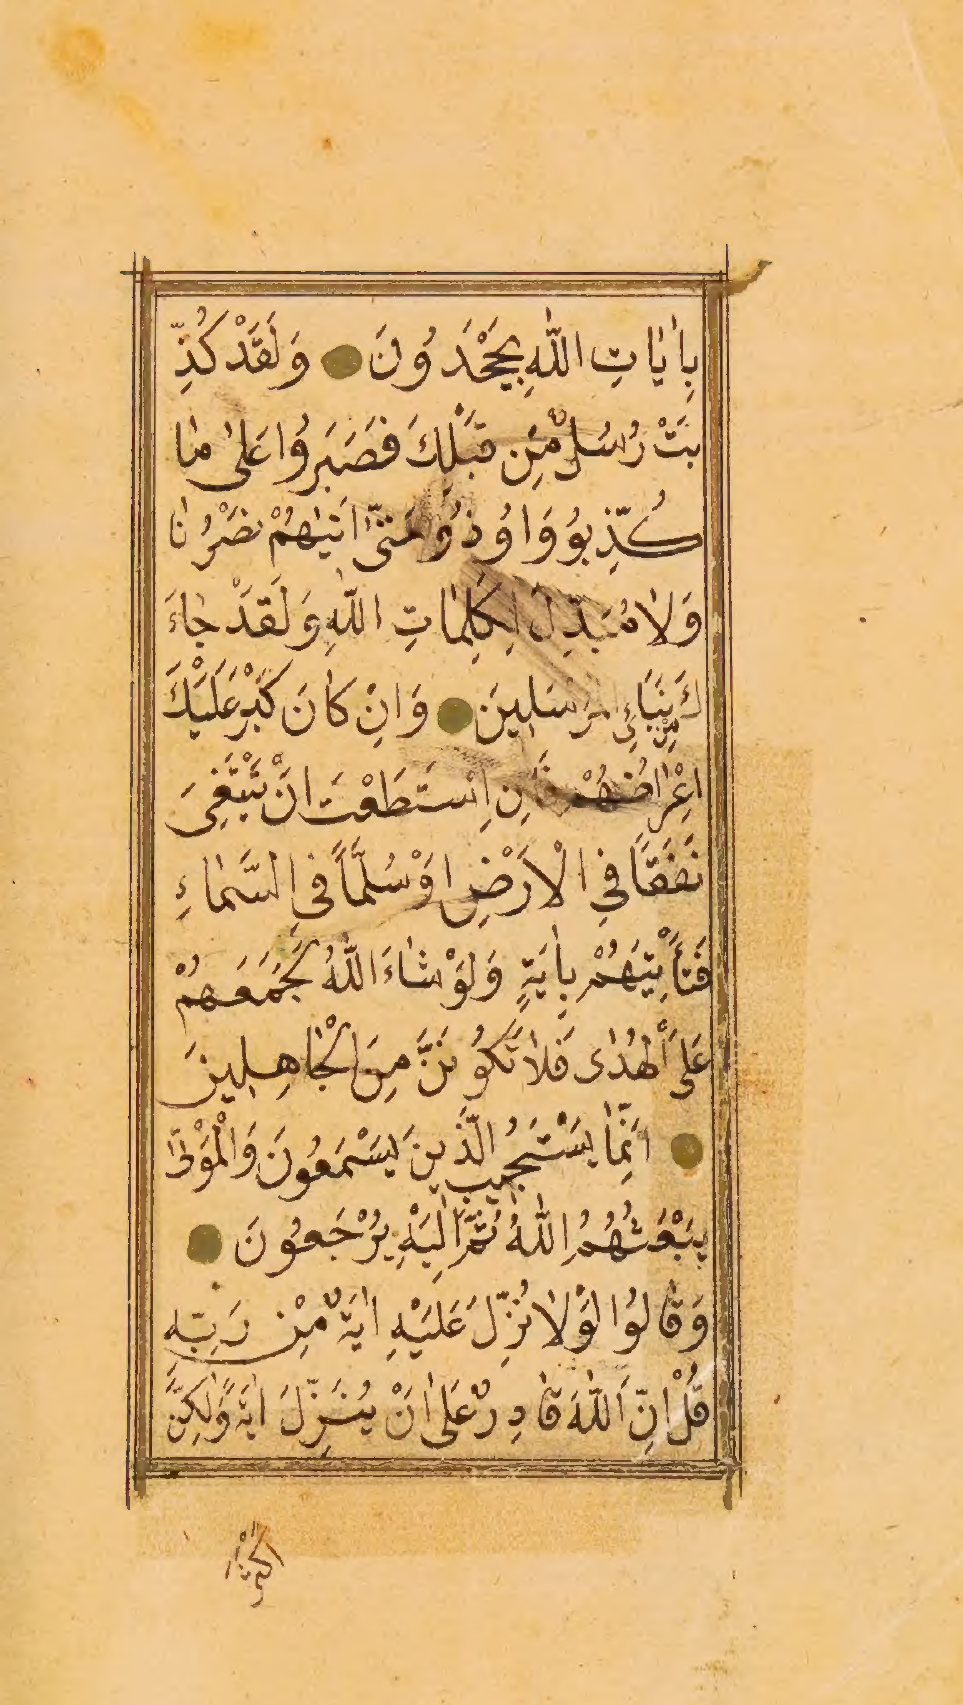 بِاٰيَاتِ اللّٰهِ يَجْحَدُونَ وَلَقَدْ كُذِّ
بَتْ رُسُلٌ مِّنْ قَبْلِكَ فَصَبَرُوا عَلٰى مٰا
كُذِّبُوا وَاُوذُوا حَتّٰى اَتٰيهُمْ نَصْرُنٰا
وَلٰا مُبَدِّلَ لِكَلِمٰاتِ اللّٰهِ وَلَقَدْ جٰاءَ
كَ مِنْ نَبَاءِ الْمُرْسَلِينَ وَاِنْ كٰانَ كَبُرَ عَلَيْكَ
اِعْرٰاضُهُمْ فَاِنِ اسْتَطَعْتَ اَنْ تَبْتَغِىَ
نَفَقًا فِي الْاَرْضِ اَوْ سُلَّمًا فِي السَّمٰاءِ
فَتَأْتِيَهُمْ بِاٰيَةٍ وَلَوْ شٰاءَ اللّٰهُ لَجَمَعَهُمْ
عَلَى الْهُدٰى فَلٰا تَكُونَنَّ مِنَ الْجٰاهِلِينَ
اِنَّمٰا يَسْتَجِيبُ الَّذِينَ يَسْمَعُونَ وَالْمَوْتٰى
يَبْعَثُهُمُ اللّٰهُ ثُمَّ اِلَيْهِ يُرْجَعُونَ
وَقٰالُوا لَوْلٰا نُزِّلَ عَلَيْهِ اٰيَةٌ مِّنْ رَبِّهِ
قُلْ اِنَّ اللّٰهَ قٰادِرٌ عَلٰى اَنْ يُنَزِّلَ اٰيَةً وَلٰكِنَّ
اَكْثَرَ